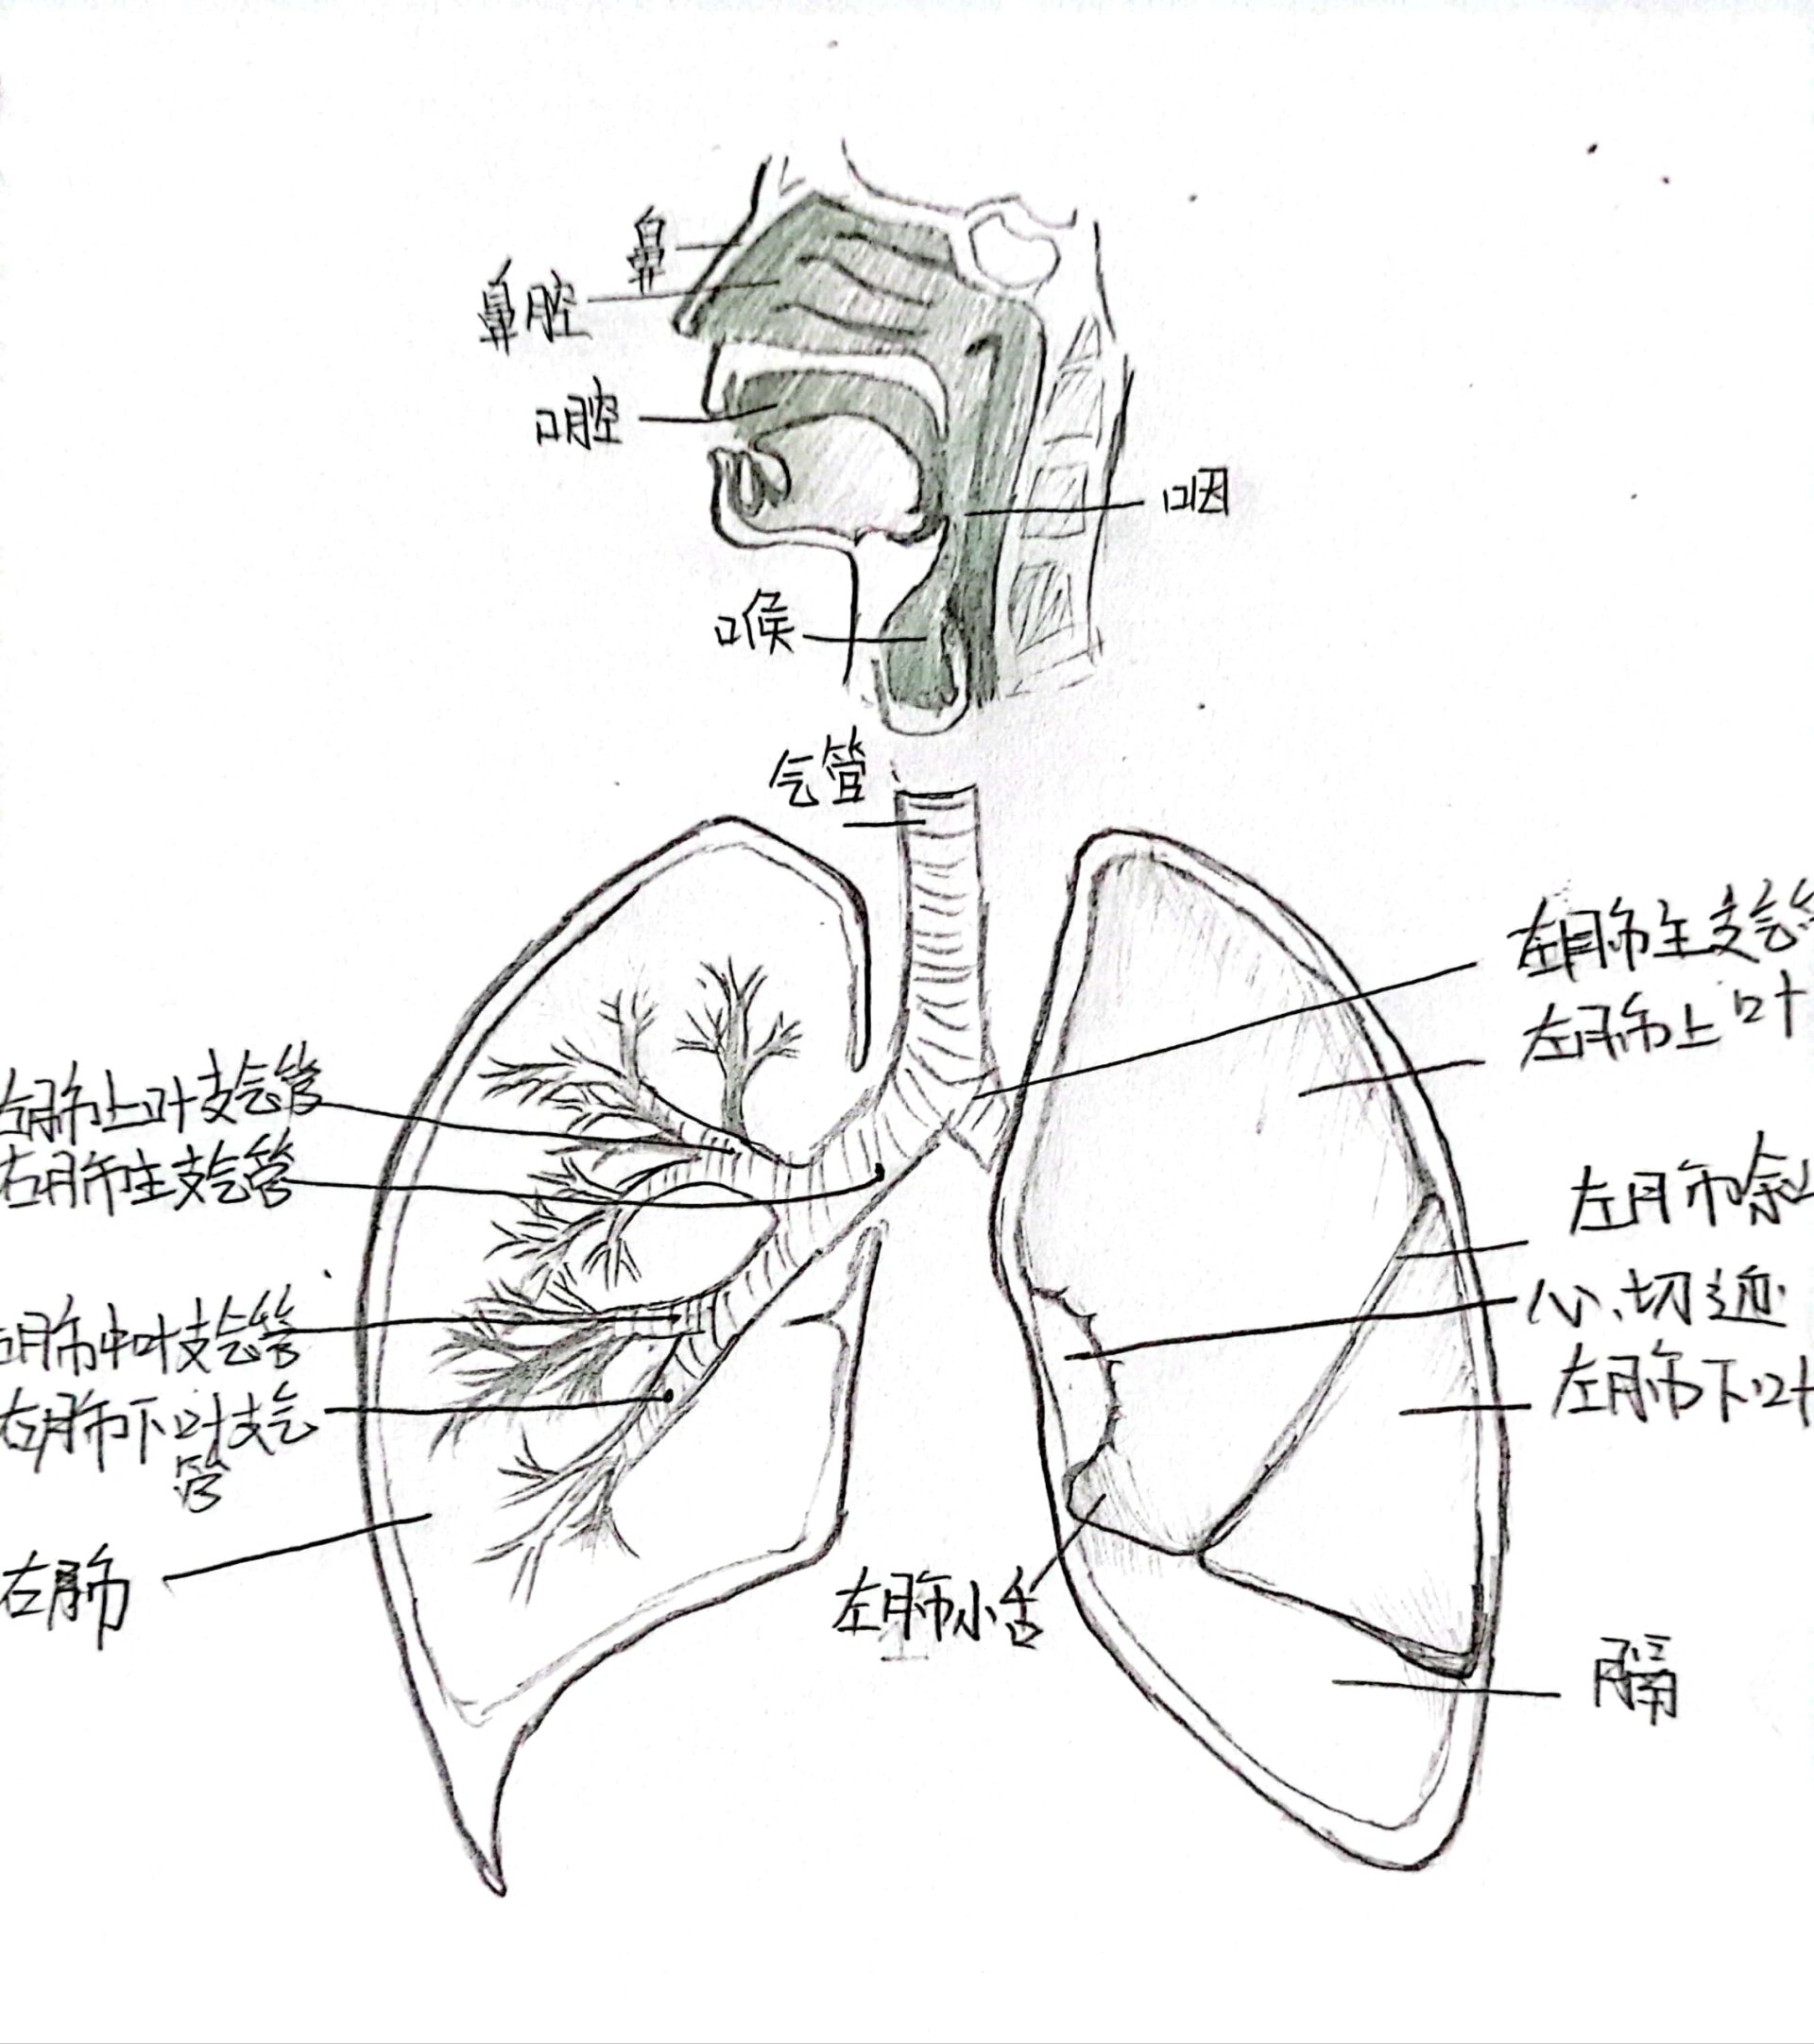 鼻
鼻腔
口腔
咽
喉
气管
左肺主支气管
左肺上叶
右肺上叶支气管
右肺主支气管
左肺斜
心切迹
右肺中叶支气管
左肺下叶
右肺下叶支气
管
右肺
左肺小舌
膈